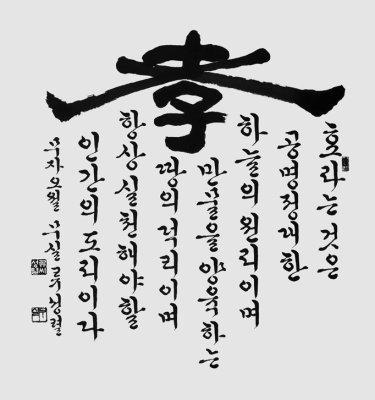 孝
효라는 것은
공명정대한
하늘의 원리이며
만물을 양육하는
땅의 덕리이며
항상 실천해야 할
인간의 도리이라
무자 오월